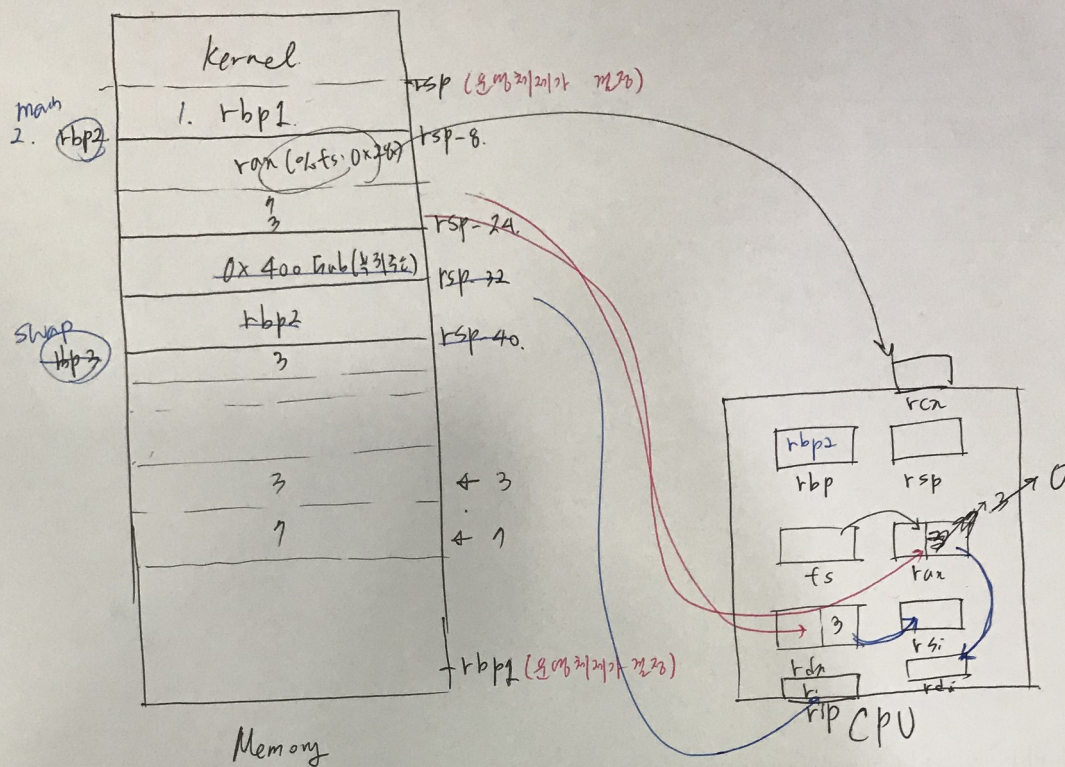 Kernel
rsp (운영체제가 결정)
main
1. rbp1
2. rbp2
rsp-8.
rax (%fs:0x28)
7
3
rsp-24.
(복귀주소)
rsp-32
rbp2
rsp-40.
swap
rbp3
3
3 ← 3
7 ← 7
rbp1 (운영체제가 결정)
Memory
rcx
rbp2
rbp
rsp
3
0
fs
rax
3
rsi
rdx
rdi
rip
CPU